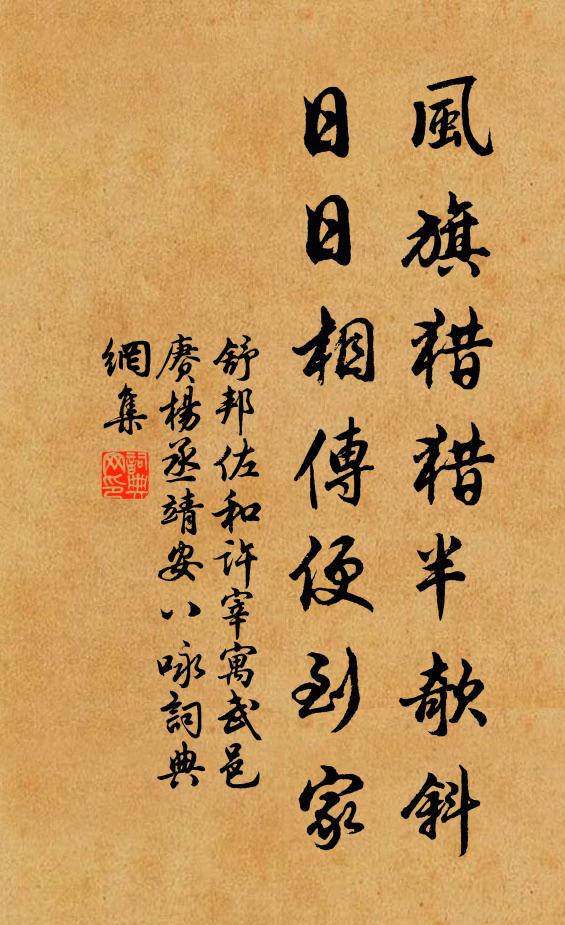 風旗猎猎半欹斜
日日相傳便到家
舒邦佐和許宰寓武邑
赓楊丞靖安八咏詞典
網集
詞典
网印